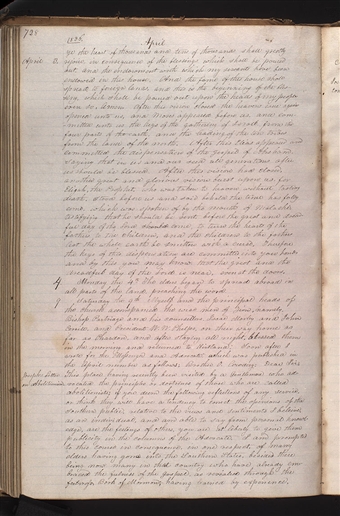 728
1836.
April
ye the heart of thousands and tens of thousands shall greatly
April 3. rejoice in consequence of the blessings which shall be poured
out, and the endowment with which my servants have been
endowed in this house. And the fame of this house shall
spread to foreign lands and this is the beginning of the bles-
sing, which shall be poured out upon the heads of my people
even so, Amen. After this vision closed the heavens were again
opened unto us and Moses appeared before us and com-
mitted unto us the keys of the gathering of Israel from the
four parts of the earth and the leading of the ten tribes
from the land of the north. After this Elias appeared and
committed the dispensation of the gospel of Abraham,
saying that in us and our seed all generations after
us should be blessed. After this vision had closed
another great and glorious vision burst upon us, for
Elijah, the Prophet, who was taken to heaven without tasting
death, stood before us and said behold the time has fully
come which was spoken of by the mouth of Malachi
testifying that he should be sent before the great and dread-
ful day of the Lord come, to turn the hearts of the
fathers to the children, and the children to the fathers
lest the whole earth be smitten with a curse. Therefore
the keys of this dispensation are committed into your hands
and by this you may know that the great and the
dreadful day of the Lord is near, even at the doors.
4 Monday the 4th The elders began to spread abroad in
all parts of the land, preaching the word.
9 Saturday the 9th Myself and the principal heads of
the church accompanied the
Bishop Partridge and his counsellors Isaac Morley and John
Corrill, and President W. W. Phelps on their way home as
far as Chardon, and after staying all night, blessed them
in the morning and returned to Kirtland. Soon after I
wrote for the Messenger and Advocate which was published in
the April number as follows, brother O. Cowdery: Dear Sir:
This place having recently been visited by a gentleman who ad-
vocated the principles or doctrines of those who are called
abolitionists; if you deem the following reflections of any service,
or think they will have a tendency to correct the opinions of the
southern public relative to the views and sentiments I believe,
as an individual, and am able to say from personal knowl-
edge, are the feelings of others, you are at liberty to give them
publicity in the columns of the Advocate. I am prompted
to this course in consequence, in one respect, of many
elders having gone into the Southern States, besides there
being now many in that country who have already em-
braced the fulness of the gospel, as revealed through the
Book of Mormon, having learned by experience,